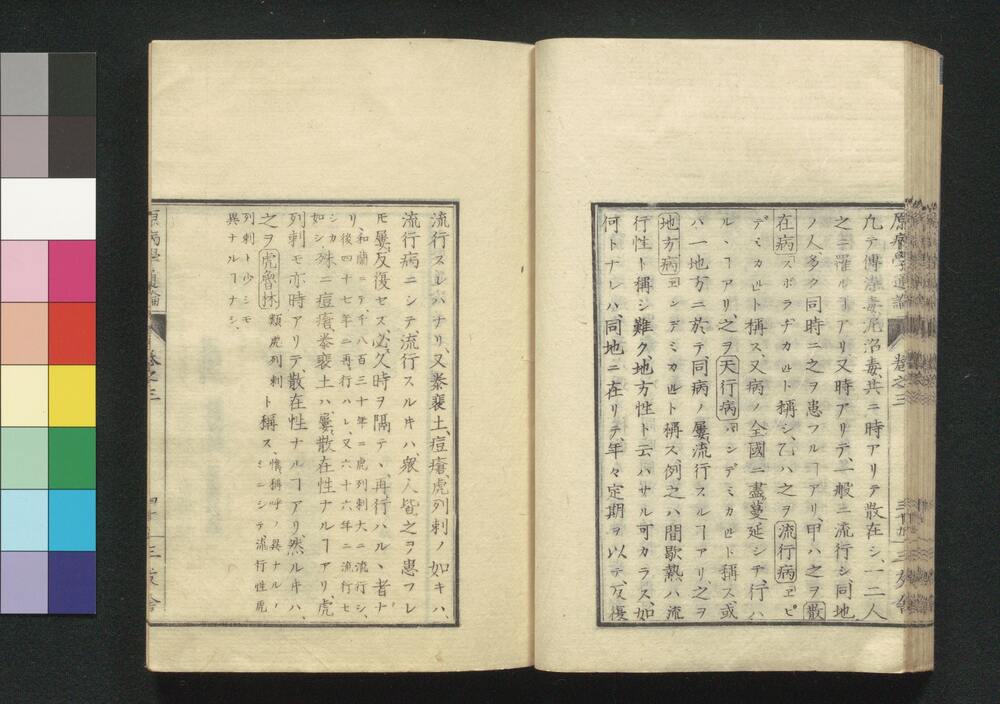 原病學通論
卷之三
三友舍
凡テ傳染毒泥沼毒共ニ時アリテ散在シ、一二人
之ニ罹ルヿアリ又時アリテ、一般ニ流行シ同地
ノ人多ク同時ニ之ヲ患フルヿアリ、甲ハ之ヲ散
在病スポラヂカㇳ稱シ、乙ハ之ヲ流行病ヱピ
デミカㇳ稱ス、又病ノ全國ニ盡蔓延シテ、行ハ
ル、ヿアリ、之ヲ天行病パンデミカㇳ稱ス或
ハ一地方ニ於テ同病ノ屢流行スルヿアリ、之ヲ
地方病ヱンデミカㇳ稱ス例之ハ間歇熱ハ流
行性ト稱シ難ク、地方性ト云ハサル可カラス、如
何トナレハ、同地ニ在リテ、年々定期ヲ以テ、反復
流行スレハナリ、又泰斐土、痘瘡、虎列剌ノ如キハ、
流行病ニシテ流行スルキハ、衆人皆之ヲ患フレ
ㇳモ屢反復セス、必久時ヲ隔テ、再行ハル、者ナ
リ、和蘭ニテ、千八百三十年ニ虎列剌大ニ流行シ、
後四十七年ニ再行ハレ、又六十六年ニ流行セ
シカ如シ、殊ニ痘瘡泰斐土ハ、屢散在性ナルヿアリ、虎
列剌モ亦時アリテ、散在性ナルヿアリ、然ルキハ、
之ヲ虎魯林類虎列剌ト稱ス、
シニシテ、流行性虎
列剌ト少シモ
異ナルヿナシ、
原病學通論
卷之三
三友舍